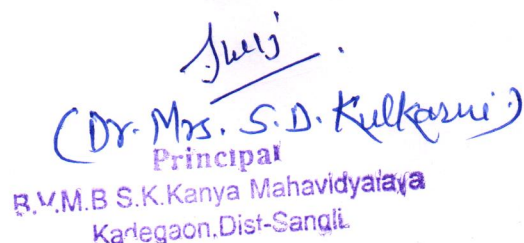 (Dr. Mrs. S. D. Kulkarni)
Principal
B.V.M.B S.K.Kanya Mahavidyalaya
Kadegaon.Dist-Sangli.